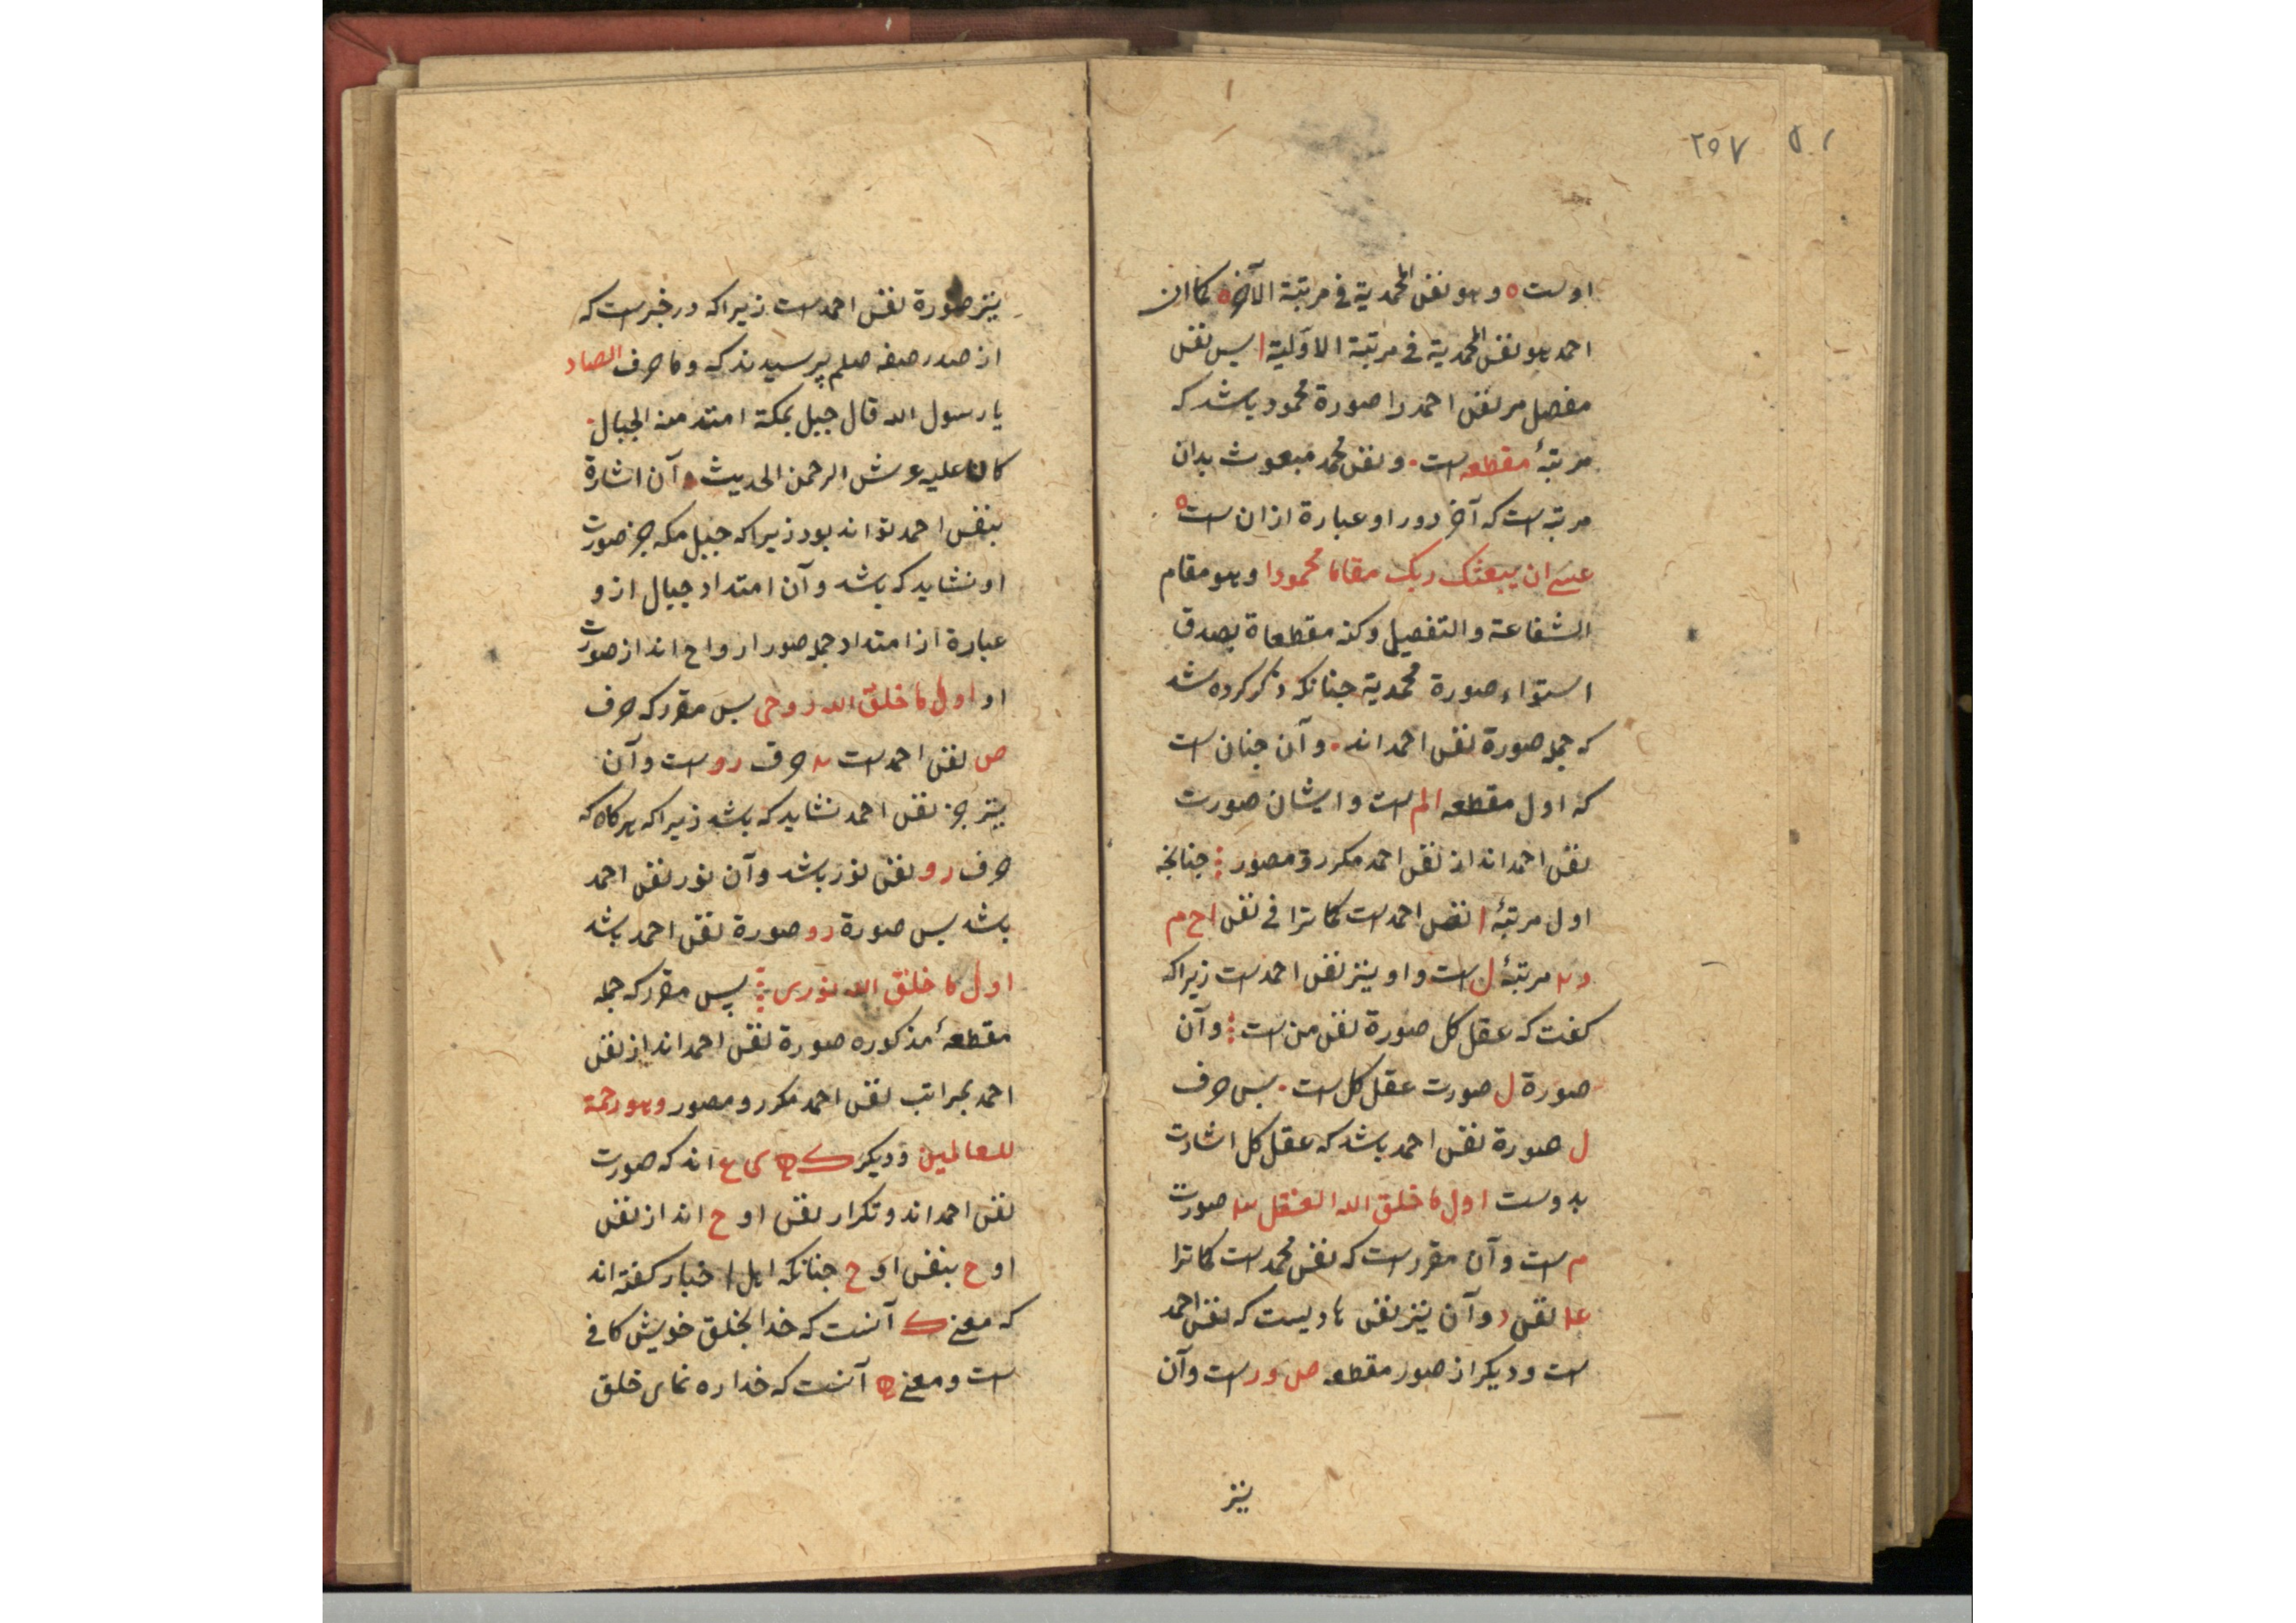 ٢٥٧
اوست ه وهو نفس المحمدیة فی مرتبة الآخرة کما ان
احمد هو نفس المحمدیة فی مرتبة الاولیة ا پس نفس
مفصل مر نفس احمد را صورة محمود باشد که
مرتبۀ مقطعه است . و نفس محمد مبعوث بدان
مرتبه است که آخر دور او عبارة از ان است ه
عسی ان یبعثک ربک مقاما محمودا وهو مقام
الشفاعة والتفصیل وکذ مقطعاة بصدق
استواء صورة محمدیة جنانکه ذکر کرده شد
که جمله صورة نفس احمد اند . و آن جنان است
که اول مقطعه الم است و ایشان صورت
نفس احمد اند از نفس احمد مکرر و مصور جنانجه
اول مرتبۀ ا نفس احمد است کما ترا فی نفس ا ح م
و ۲ مرتبۀ ل است و او نیز نفس احمد است زیراکه
کفت که عقل کل صورة نفس من است و آن
صورة ل صورت عقل کل است . پس حرف
ل صورة نفس احمد باشد که عقل کل اشارت
بدوست اول ما خلق الله العقل ۳ صورت
م است و آن مقرر است که نفس محمد است کما ترا
نفس د و آن نیز نفس هادیست که نفس احمد
است و دیکر از صور مقطعه ص و ر است و آن
نیز
نیز صورة نفس احمد است زیراکه در خبر است که
از صدر صفه صلم پرسیدند که و ما حرف الصاد
یا رسول الله قال جبل بمکة امتد منه الجبال .
کان علیه عرش الرحمن الحدیث و آن اشارة
بنفس احمد تواند بود زیراکه جبل مکه جز صورت
او نشاید که باشد و آن امتداد جبال ازو
عبارة از امتداد جمله صور ارواح اند از صورت
او اول ما خلق الله روحی پس مقرر که حرف
ص نفس احمد است ۲ حرف ر و است و آن
نیز جز نفس احمد نشاید که باشد زیراکه هرکاه که
حرف ر و نفس نور باشد و آن نور نفس احمد
باشد پس صورة ر و صورة نفس احمد باشد
اول ما خلق الله نوری پس مقرر که جمله
مقطعۀ مذکوره صورة نفس احمد اند از نفس
احمد بمراتب نفس احمد مکرر و مصور وهو رحمة
للعالمین و دیکر ک ه ی ع اند که صورت
نفس احمد اند و تکرار نفس ا و ح اند از نفس
ا و ح بنفس ا و ح جنانکه اهل اخبار کفته اند
که معنی ک آنست که خدا بخلق خویش کافی
است و معنی ه آنست که خدا ره نمای خلق